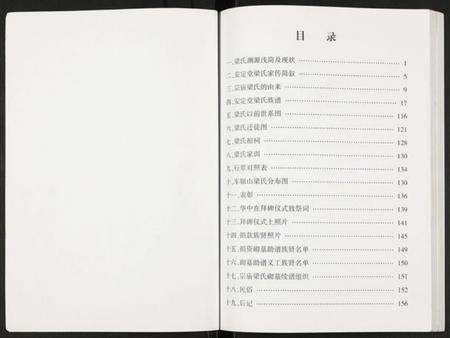 目 录
一.梁氏渊源浅简及现状 1
二.安定堂梁氏家传简叙 5
三.宗庙梁氏的由来 9
四.安定堂梁氏族谱 17
五.梁氏以前世系图 116
六.梁氏迁徙图 121
七.梁氏祖祠 128
八.梁氏家训 130
九.行草对照表 134
十.车辕山梁氏分布图 130
十一.表彰 136
十二.华中在拜碑仪式致祭词 139
十三.拜碑仪式上照片 141
十四.捐款族贤照片 145
十五.捐资砌墓助谱族贤名单 149
十六.砌墓助谱义工族贤名单 150
十七.宗庙梁氏砌墓续谱组织 151
十八.民俗 152
十九.后记 156